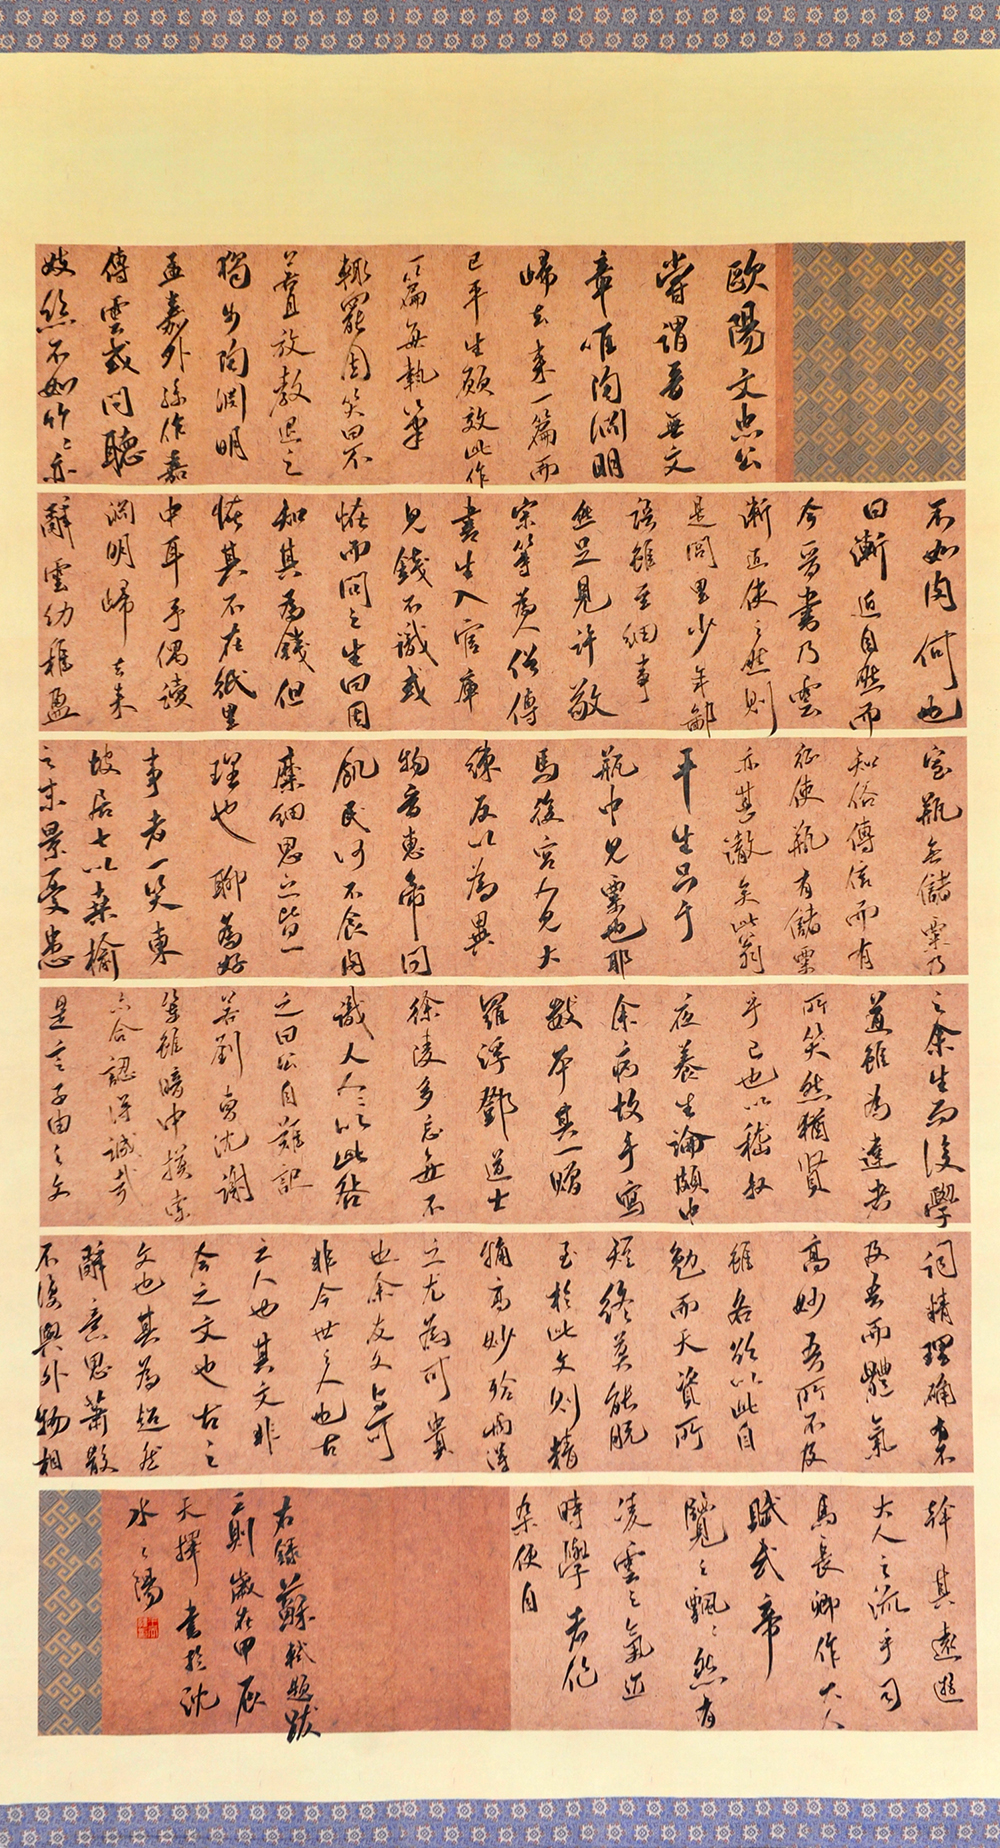 歐陽文忠公
嘗謂晉無文
章唯陶淵明
歸去來一篇而
已平生願效此作
一篇每執筆
輒罷因笑曰不
若且放教退之
獨步陶淵明
孟嘉外孫作嘉
傳雲或問聽
妓絲不如竹竹亦
不如肉何也
曰漸近自然而
今晉書乃雲
漸近使之然則
是閭里少年鄙
語雖至細事
然足見許敬
宗等為人俗傳
書生入官庫
見錢不識或
怪而問之生曰固
知其為錢但
怪其不在紙裏
中耳予偶讀
淵明歸去來
辭雲幼稚盈
室瓶無儲粟乃
知俗傳信而有
征使瓶有儲粟
亦甚微矣此翁
平生只于
瓶中見粟也耶
馬後宮人見大
練反以為異
物晉惠帝問
飢民何不食肉
糜細思之皆一
理也聊為好
事者一笑東
坡居士以桑榆
之末景憂患
之余生而後學
道雖為達者
所笑然猶賢
乎已也以嵇叔
夜養生論頗中
余病故手寫
數本其一贈
羅浮鄧道士
徐淩多忘每不
識人人以此咎
之曰公自難記
若劉曹沈謝
輩雖暗中摸索
亦合認得誠哉
是言子由之文
詞精理確有不
及吾而體氣
高妙吾所不及
雖各欲以此自
勉而天資所
短終莫能脫
至於此文則精
確高妙殆兩得
之尤為可貴
也余友文與可
非今世之人也古
之人也其文非
今之文也古之
文也其為超然
辭意思蕭散
不復與外物相
幹其遠遊
大人之流乎司
馬長卿作大人
賦武帝
覽之飄飄然有
淩雲之氣近
時學者作
杂便自
右錄蘇軾題跋
二則歲在甲辰
天擇書於沈
水之陽